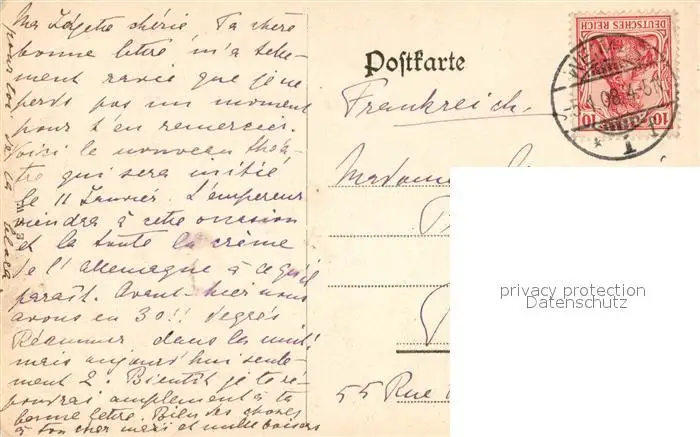 Ma chérie Ta chère
bonne letre m'a telle-
ment ravie que je ne
perds pas un moment
pour t'en remercier.
Voici le nouveau théâ-
tre qui sera initié
le 11 Janvier. L'empereur
viendra à cette occasion
et la toute la crème
de l'Allemagne à ce qu'il
paraît. Avant-hier nous
avons eu 30!! degrés
Réaumur dans la nuit!
mais aujourd'hui seule-
ment 2. Bientôt je te ré-
pondrai amplement à ta
bonne letre. Bien des choses
à ton cher mari et mille baisers
pour toi de ta
Postkarte
DEUTSCHES REICH
10 10
1.08.4-5
1
Frankreich.
Madame
55 Rue
privacy protection
Datenschutz